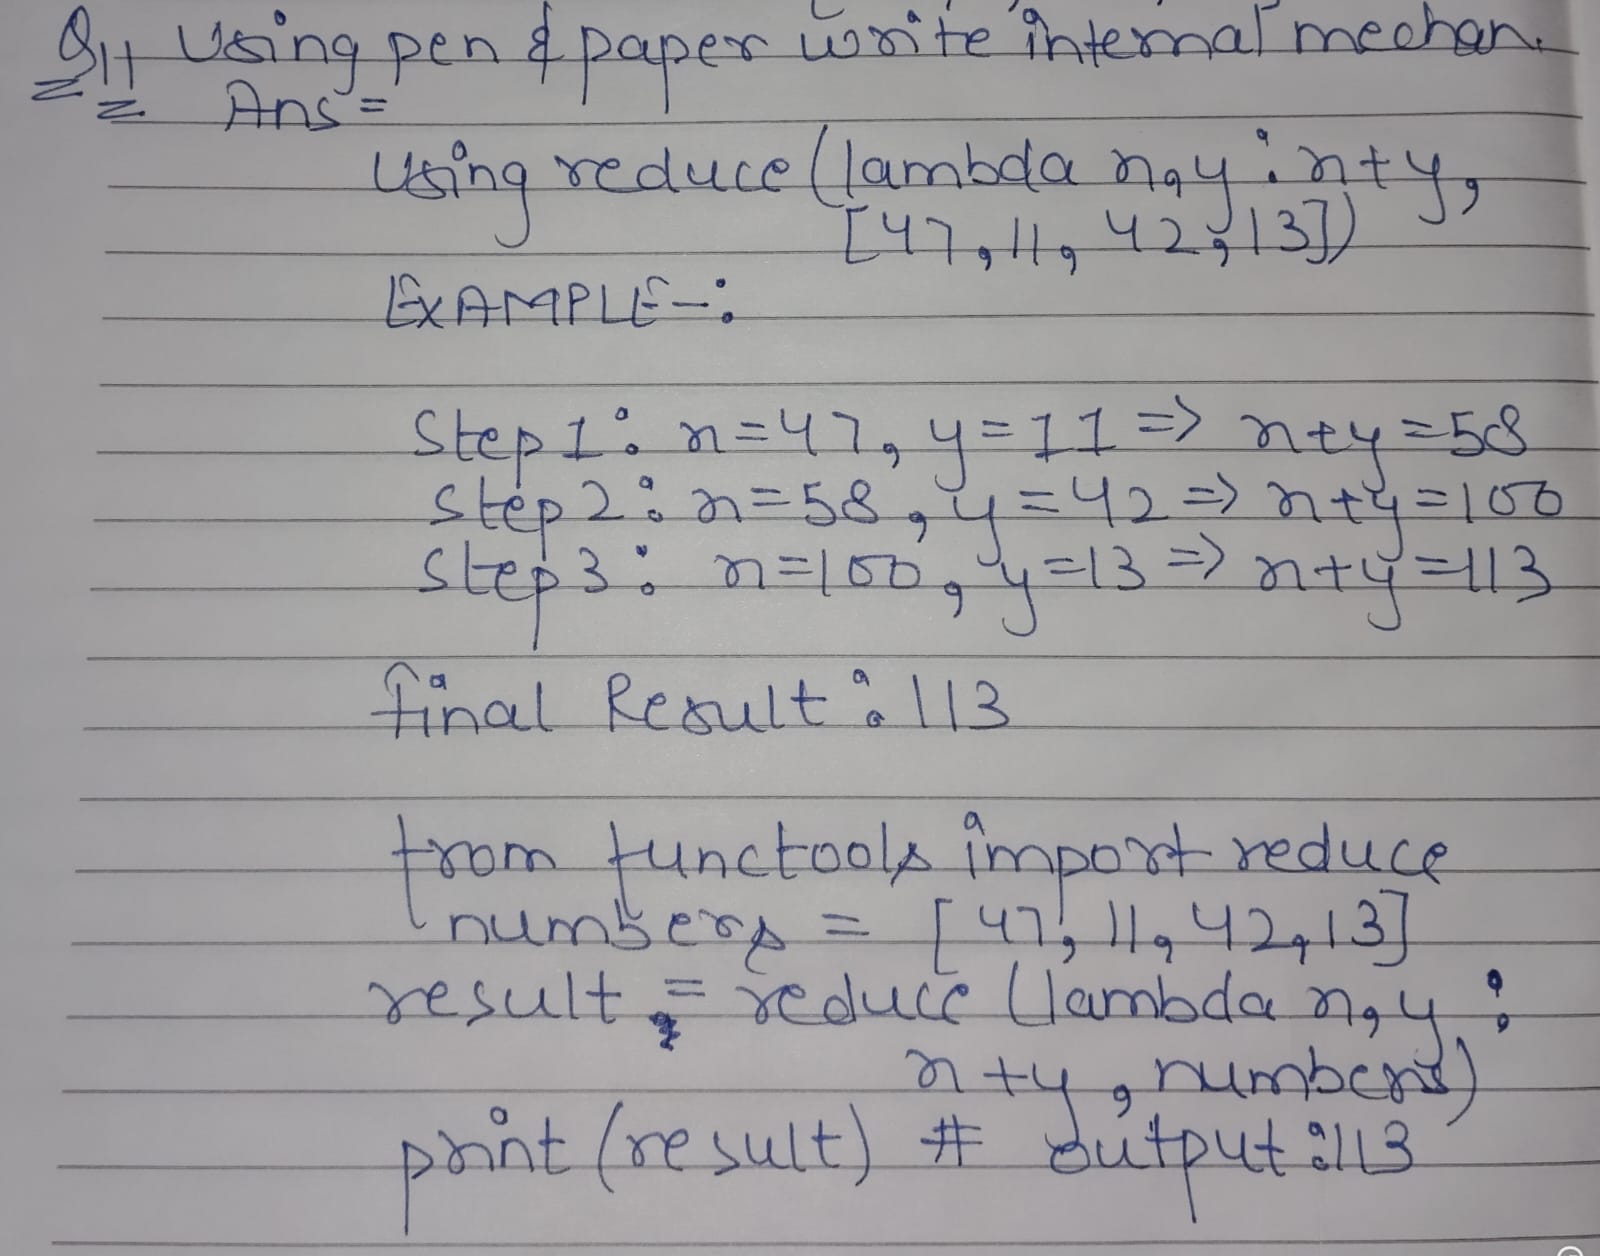 Q11 Using pen & paper write internal mechan.
Ans =
Using reduce (lambda x,y : x+y,
[47, 11, 42, 13])
EXAMPLE-:
Step 1: x=47, y=11 => x+y=58
Step 2: x=58, y=42 => x+y=100
Step 3: x=100, y=13 => x+y=113
final Result : 113
from functools import reduce
numbers = [47, 11, 42, 13]
result = reduce (lambda x,y :
x+y, numbers)
print (result) # output : 113